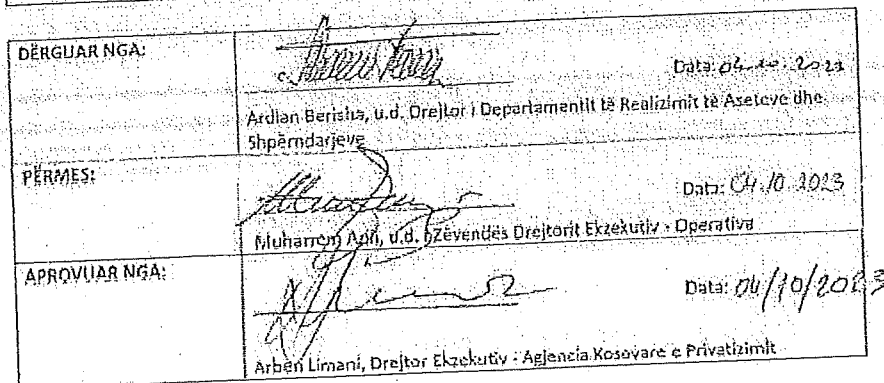 DËRGUAR NGA:
Data: 04.10.2023
Ardian Berisha, u.d. Drejtor i Departamentit të Realizimit të Aseteve dhe
Shpërndarjeve
PËRMES:
Data: 04.10.2023
Muharrem u.d. i Zëvendës Drejtorit Ekzekutiv - Operativa
APROVUAR NGA:
Data: 04/10/2023
Arben Limani, Drejtor Ekzekutiv - Agjencia Kosovare e Privatizimit